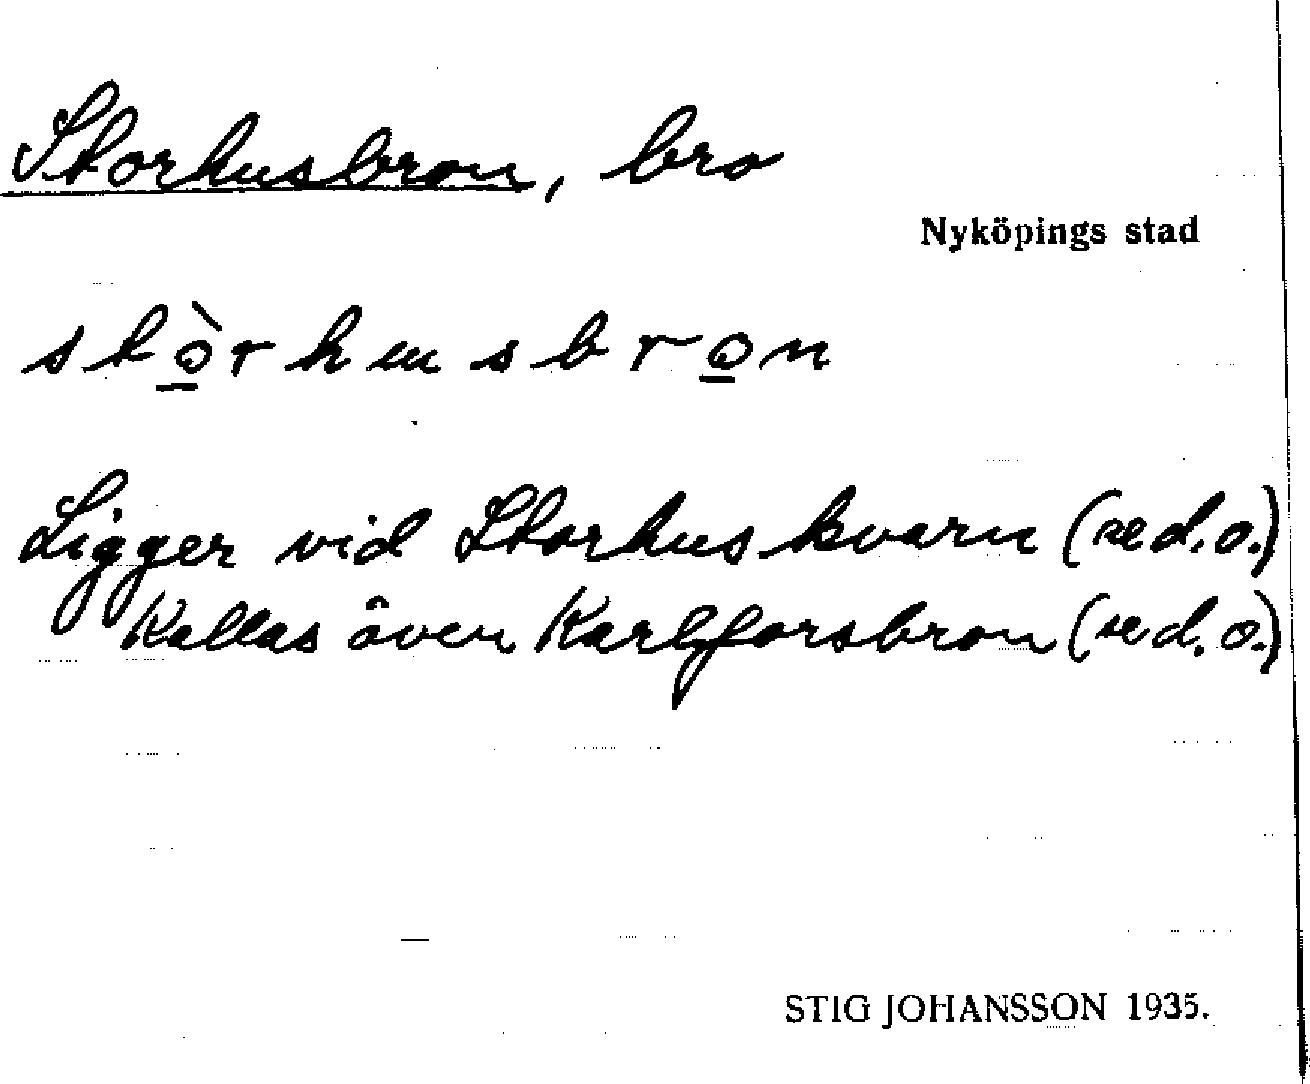 Storhusbron, bro
Nyköpings stad
stò̲rhusbro̲n
Ligger vid Storhuskvarn (se d.o.)
Kallas även Karlforsbron (se d.o.)
STIG JOHANSSON 1935.